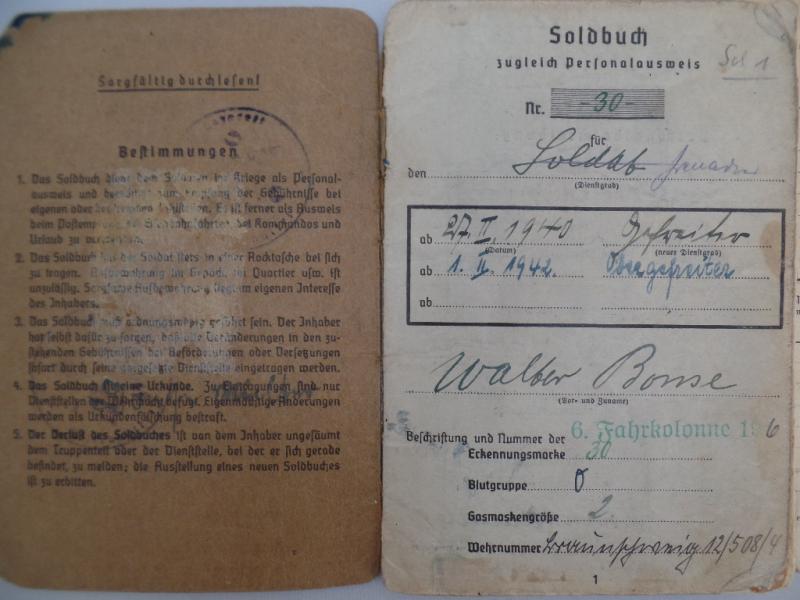 Sorgfältig durchlesen!
Bestimmungen
1. Das Soldbuch dient dem Soldaten im Kriege als Personal-
ausweis und berechtigt zum Empfang der Gebührnisse bei
eigenen oder fremden Zahlstellen. Es ist ferner als Ausweis
beim Postempfang, bei Eisenbahnfahrten, bei Kommandos und
Urlaub zu verwenden.
2. Das Soldbuch hat der Soldat stets in einer Rocktasche bei sich
zu tragen. Aufbewahrung im Gepäck, im Quartier usw. ist
unzulässig. Sorgsame Aufbewahrung liegt im eigenen Interesse
des Inhabers.
3. Das Soldbuch muß ordnungsmäßig geführt sein. Der Inhaber
hat selbst dafür zu sorgen, daß alle Veränderungen in den zu-
stehenden Gebührnissen bei Beförderungen oder Versetzungen
sofort durch seine vorgesetzte Dienststelle eingetragen werden.
4. Das Soldbuch ist eine Urkunde. Zu Eintragungen sind nur
Dienststellen der Wehrmacht befugt. Eigenmächtige Änderungen
werden als Urkundenfälschung bestraft.
5. Der Verlust des Soldbuches ist von dem Inhaber ungesäumt
dem Truppenteil oder der Dienststelle, bei der er sich gerade
befindet, zu melden; die Ausstellung eines neuen Soldbuches
ist zu erbitten.
Soldbuch
zugleich Personalausweis
Sol 1
Nr. -30-
für
den Soldat
(Dienstgrad)
ab 27. II. 1940 Gefreiter
(Datum) (neuer Dienstgrad)
ab 1. II. 1942 Obergefreiter
ab
Walter Bonse
(Vor- und Zuname)
Beschriftung und Nummer der 6. Fahrkolonne 196
Erkennungsmarke 30
Blutgruppe O
Gasmaskengröße 2.
Wehrnummer Braunschweig 12/508/4
1